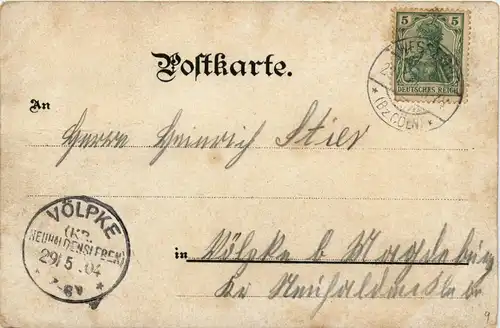 5 5
DEUTSCHES REICH
(BZ. CÖLN)
Postkarte.
An
Herrn Heinrich Stier
VÖLPKE
(KR.
NEUHALDENSLEBEN)
29/5 04
in Völpke b Magdeburg
Kr Neuhaldensleben
9